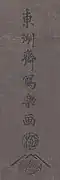 東洲齋寫樂画